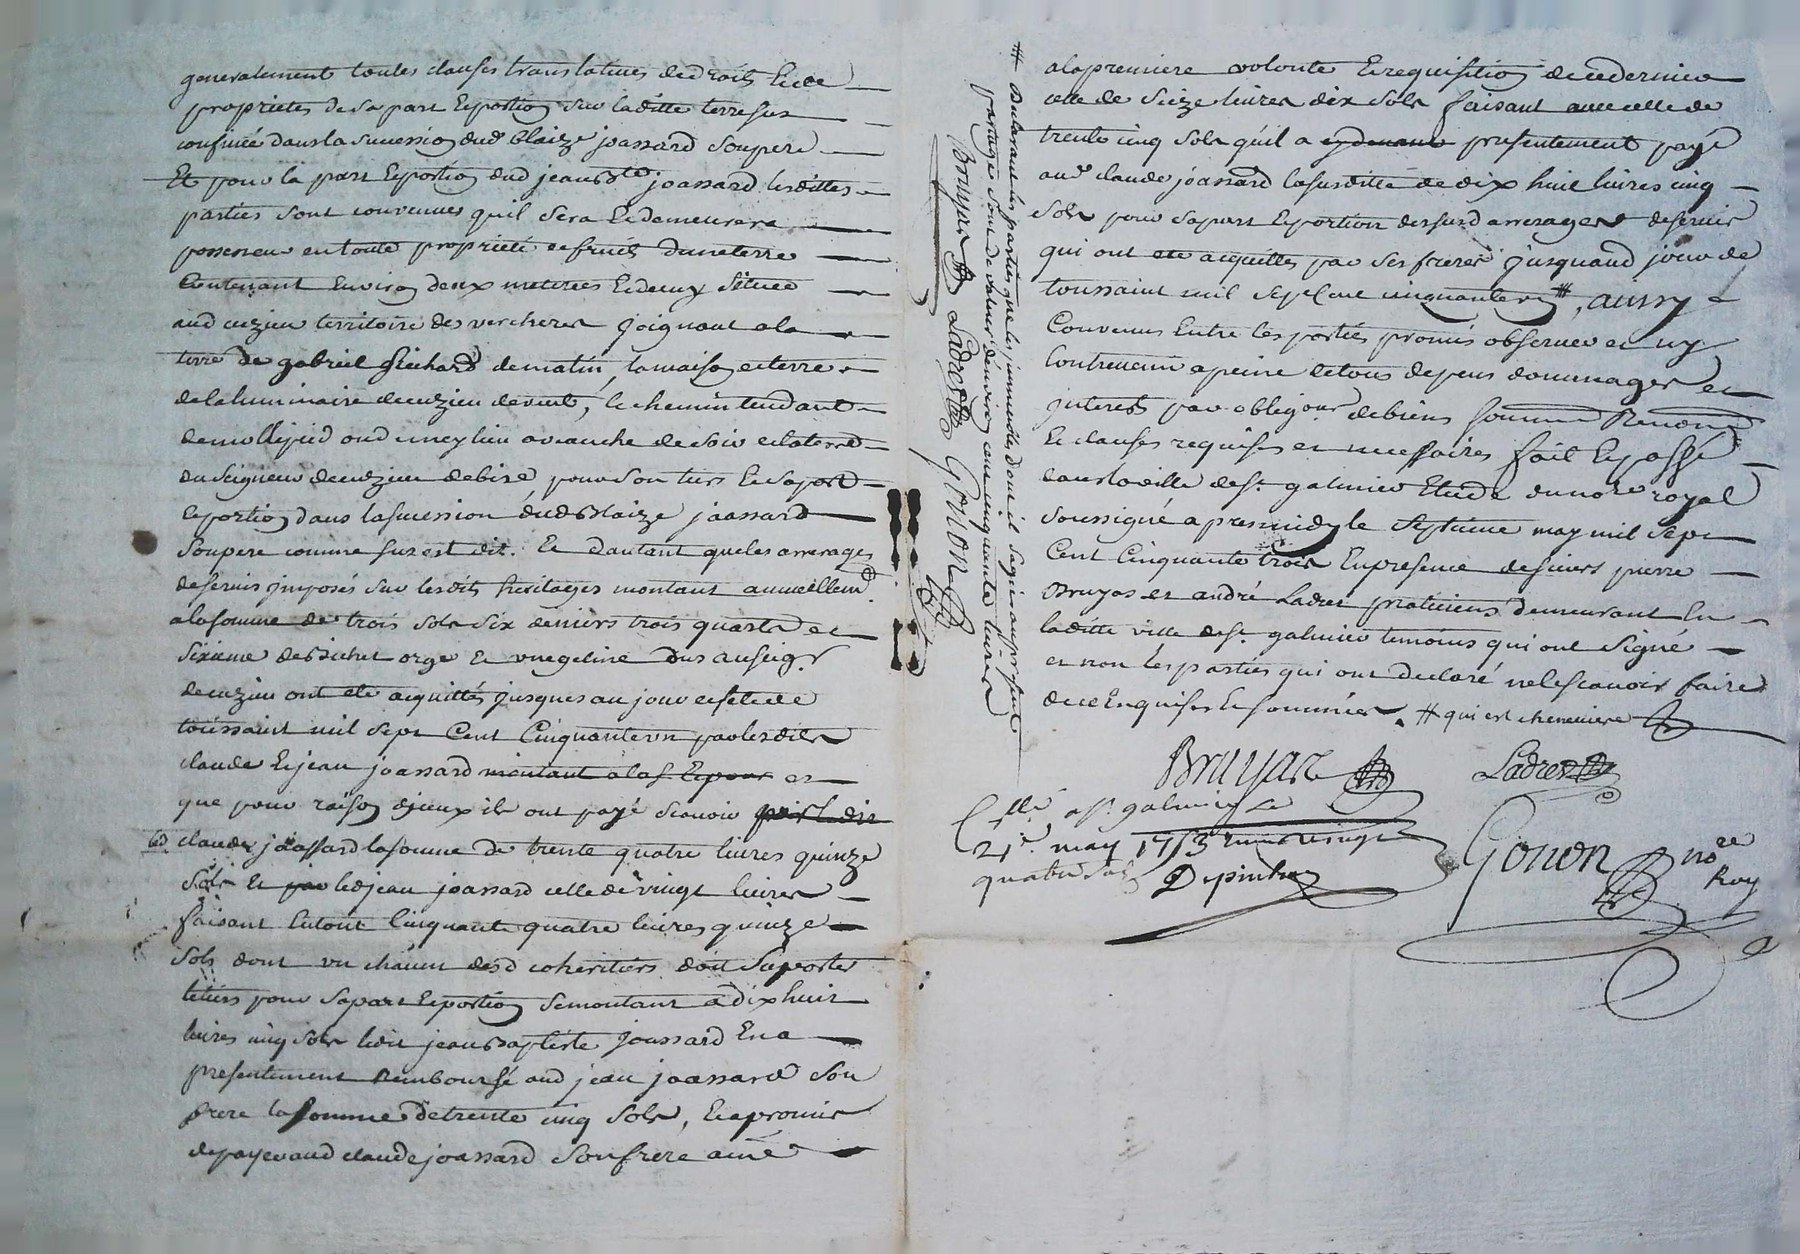 generalement toutes clauses translatives de droits et de
proprietes de sa part et portion sur laditte terre sus
confinée dans la succession dud blaize joassard son pere
Et pour la part et portion dud jean bte joassard lesdittes
parties sont convenues quil sera et demeurera
possesseur en toute proprieté et fruits dune terre
Contenant Environ deux meterées et demy située
aud cuzieu territoire des vercheres joignant a la
terre de gabriel Guichard de matin, la maison et terre
de la luminaire de cuzieu de vent, le chemin tendant
de mollejied aud cuzieu un autre de soir et la terre
du Seigneur de cuzieu de bize pour son tiers et sa part
et portion dans la succession dud Blaize joassard
Son pere comme sus est dit. Et dautant que les arrerages
de servis jmposés sur lesdits heritages montant annuellemt
a la somme de trois sols six deniers trois quarts et
Sixieme de bichet orge et une geline dus au seigr
de cuzieu ont eté acquittés jusques au jour et fete de
toussaint mil sept Cent Cinquante un par lesdits
claude et jean joassard montant a la s. et pour et
que pour raison diceux ils ont payé scavoir par led
claude joassard la somme de trente quatre livres quinze
Sols et par led jean joassard celle de vingt livres
faisant Entout Cinquante quatre livres quinze
Sols dont un chacun desd coheritiers doit suporter
le tiers pour sa part et portion se montant a dix huit
livres cinq sols ledit jean Baptiste joassard En a
presentement Remboursé aud jean joassard son
frere la somme de trente cinq sols, et a promis
de payer aud claude joassard son frere ainé
# Declarant les parties que les jmmeubles dont il sagit au present
partage sont de valeur denviron cent cinquante livres
Bruyas Ladret Gonon
a la premiere volonté et requisition de ce dernier
celle de seize livres dix sols faisant avec celle de
trente cinq sols quil a cy devant presentement payé
aud claude joassard la susditte de dix huit livres cinq
Sols pour sa part et portion des susd arrerages de servis
qui ont eté acquittés par ses freres jusquaud jour de
toussaint mil sept cent cinquante un #, aussy
Convenus Entre les parties promis observer et ny
Contrevenir a peine de tous depens dommages et
jnterets par obligaon de biens soumm Renonons
Et clauses requises et necessaires fait et passé
dans la ville de st galmier Etude du nore royal
Soussigné apres midy le septieme may mil sept
Cent Cinquante trois En presence de sieurs pierre
Bruyas et andré Ladret praticiens demeurant En
laditte ville de st galmier temoins qui ont signé
et non les parties qui ont declaré ne le scavoir faire
de ce Enquises Et sommées. # qui est cheneviere
Bruyas Ladret
Cllé a st galmier le
21e may 1753 Reçu vingt
quatre sols Depinhac
Gonon nore
Roy